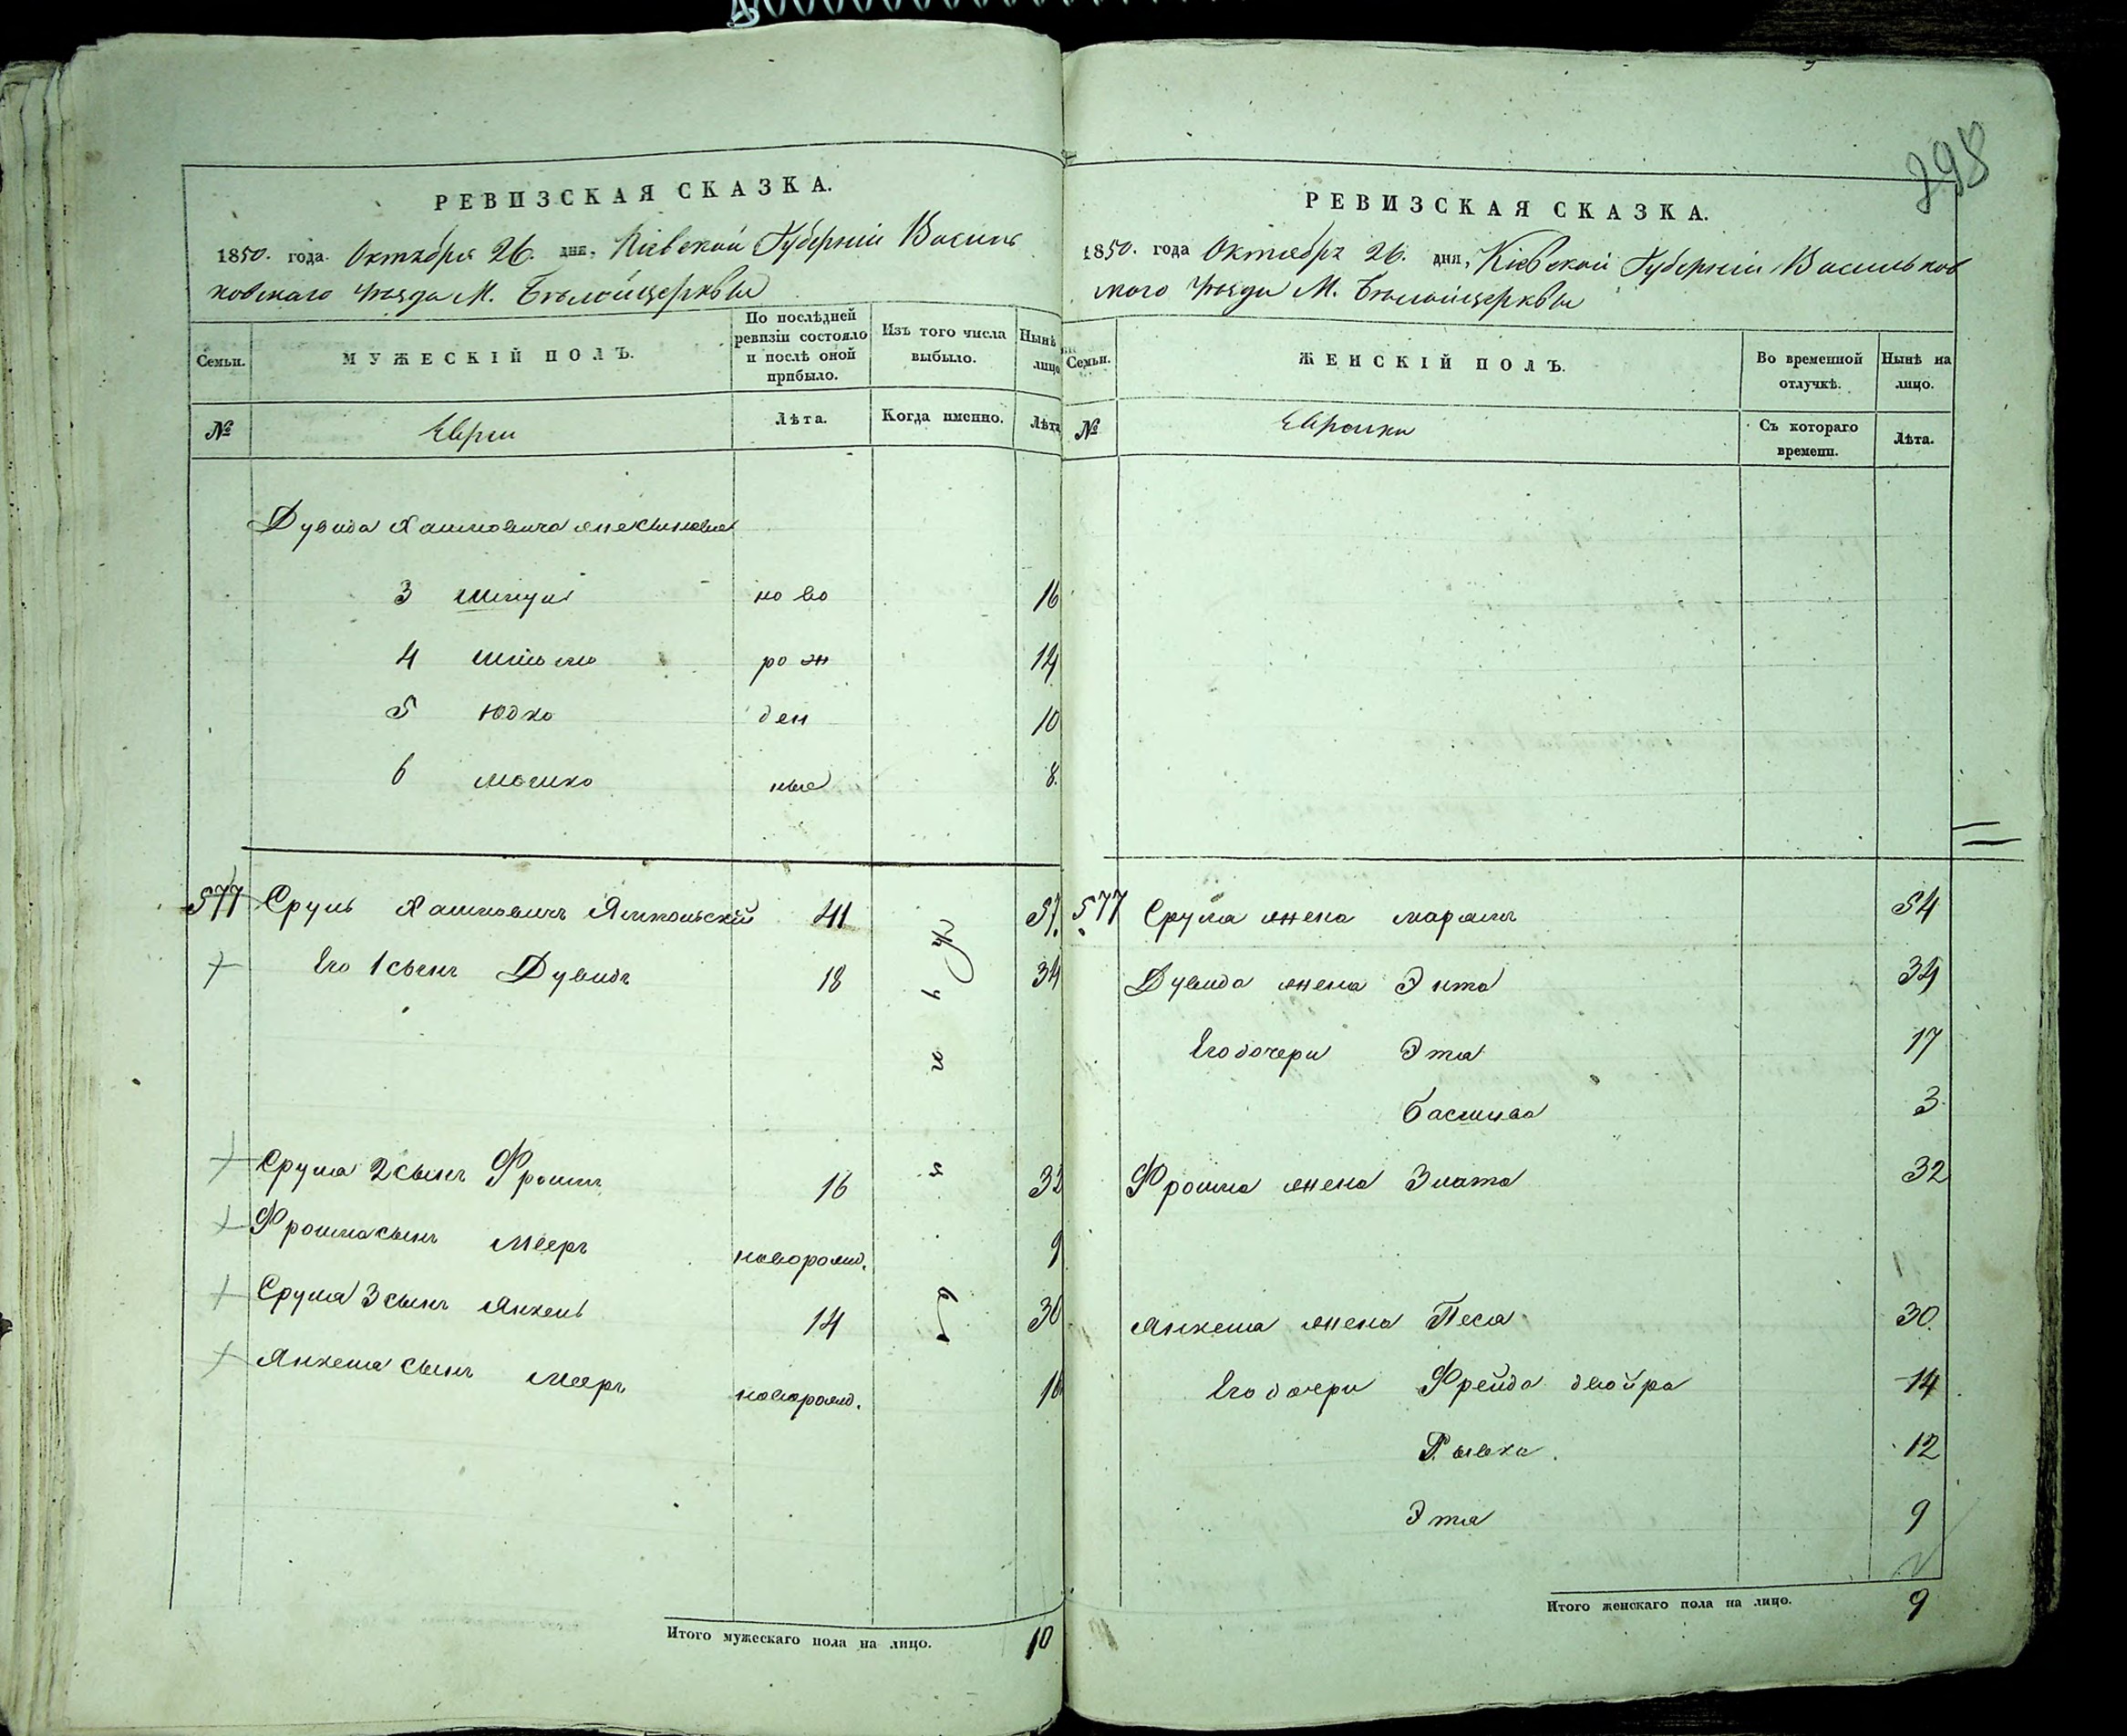 298
РЕВИЗСКАЯ СКАЗКА.
1850. года Октября 26. дня, Кіевской Губерніи Василь
ковскаго уѣзда М. Бѣлойцеркви
Семьи.
МУЖЕСКІЙ ПОЛЪ.
По послѣдней ревизіи состояло и послѣ оной прибыло.
Изъ того числа выбыло.
Нынѣ лицо
№
Евреи
Лѣта.
Когда именно.
Лѣта
Дувида Хаимовича
3 16
ново
4 14
рож
5 Юдко ден 10
6 Мошко ные 8.
577 Сруль Хаимовичъ Ямпольскій 41 57.
Его 1 сынъ Дувидъ 18 34
Сруля 2 сынъ Фроимъ 16 32
Фроима сынъ Мееръ новорожд. 9
Сруля 3 сынъ Янкель 14 30
Янкеля сынъ Мееръ новорожд. 10
Итого мужескаго пола на лицо. 10
РЕВИЗСКАЯ СКАЗКА.
1850. года Октября 26. дня, Кіевской Губерніи Васильков
скаго уѣзда М. Бѣлойцеркви
Семьи.
ЖЕНСКІЙ ПОЛЪ.
Во временной отлучкѣ.
Нынѣ на лицо.
№
Еврейки
Съ котораго времени.
Лѣта.
577 Сруля жена Марьямъ 54
Дувида жена Энта 34
Его дочери Эта 17
Басшива 3
Фроима жена Злата 32
Янкеля жена Песя 30.
Его дочери Фрейда Двойра 14
Рывка. 12
Эта 9
Итого женскаго пола на лицо. 9